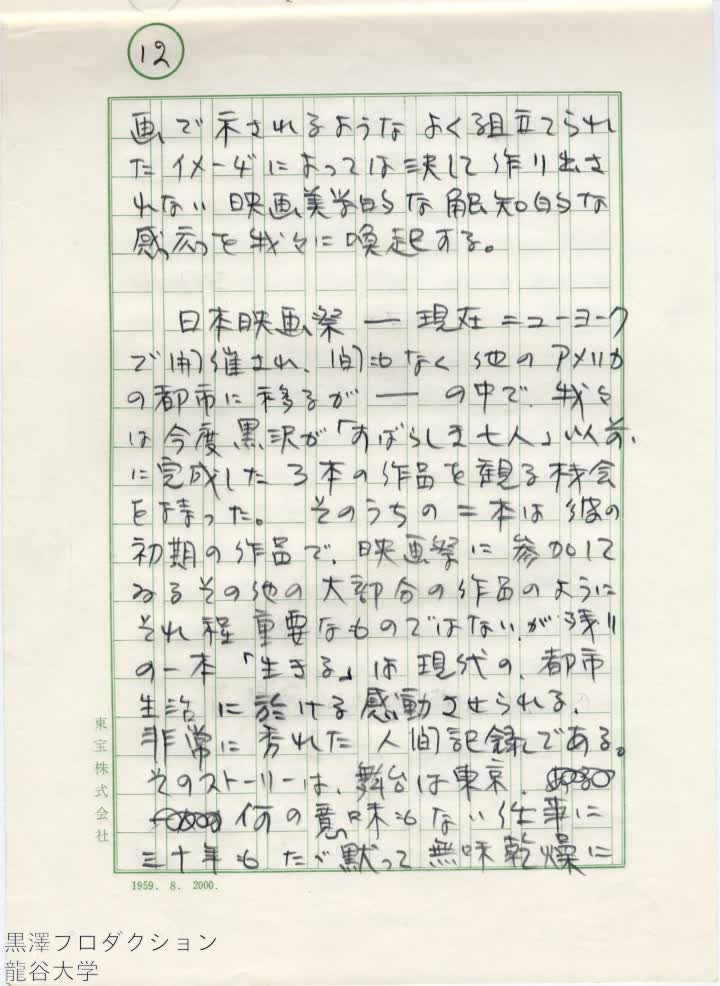 12
画で示されるような よく組立てられ
たイメーヂによっては決して作り出さ
れない 映画美学的な 解知的な
感応を我々に喚起する。
日本映画祭 ― 現在 ニューヨーク
で開催され、間もなく 他の アメリカ
の都市に移るが ― の中で、我々
は今度 黒沢が「すばらしき七人」以前
に完成した 3本の作品を観る機会
を持った。 そのうちの 二本は 彼の
初期の作品で、映画祭に参加して
ゐるその他の大部分の作品のように
それ程 重要なものではないが 残り
の一本「生きる」は 現代の、都市
生活に於ける感動させられる、
非常に秀れた 人間記録である。
そのストーリーは、舞台は東京、
何の意味もない仕事に
三十年も ただ黙って 無味乾燥に
東宝株式会社
1959. 8. 2000.
黒澤プロダクション
龍谷大学